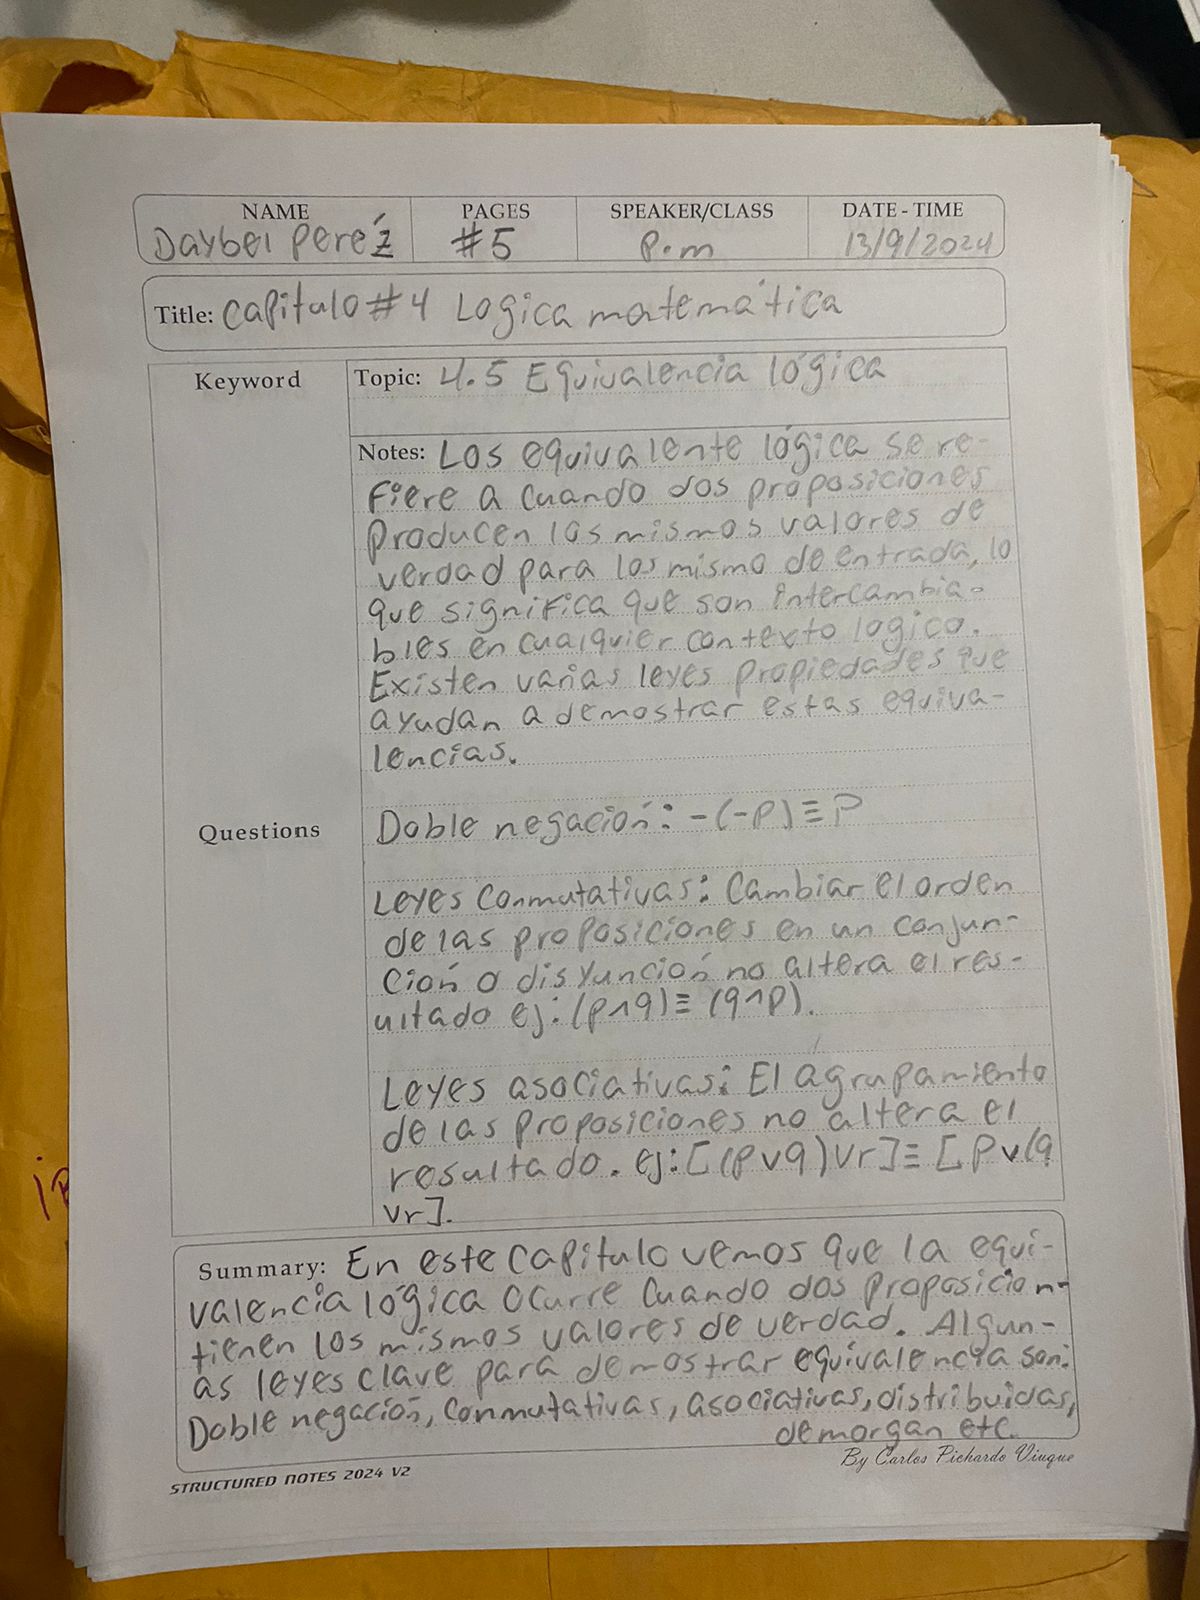 NAME PAGES SPEAKER/CLASS DATE - TIME
Daybel Peréz #5 P.m 13/9/2024
Title: Capitulo #4 Logica matemática
Keyword
Topic: 4.5 Equivalencia lógica
Notes: Los equivalente lógica se re-
fiere a cuando dos proposiciones
producen los mismos valores de
verdad para los mismo de entrada, lo
que significa que son intercambia-
bles en cualquier contexto logico.
Existen varias leyes propiedades que
ayudan a demostrar estas equiva-
lencias.
Questions
Doble negación: -(-p) ≡ P
Leyes Conmutativas: Cambiar el orden
de las proposiciones en un conjun-
ción o disyunción no altera el res-
ultado ej: (p∧q) ≡ (q∧p).
Leyes asociativas: El agrupamiento
de las proposiciones no altera el
resultado. ej: [(p∨q)∨r] ≡ [p∨(q
∨r].
Summary: En este Capitulo vemos que la equi-
valencia lógica ocurre Cuando dos proposicion-
tienen los mismos valores de verdad. Algun-
as leyes clave para demostrar equivalencia son:
Doble negación, Conmutativas, asociativas, distribuidas,
demorgan etc.
By Carlos Pichardo Viuque
STRUCTURED NOTES 2024 V2